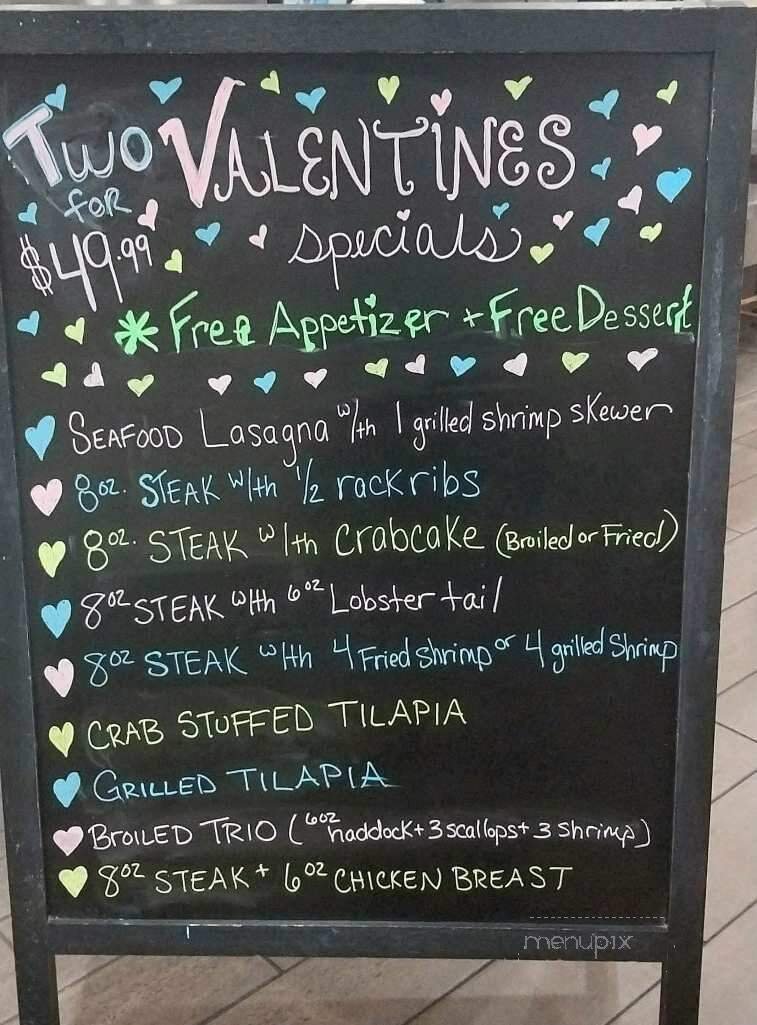 Two VALENTINES
for
$49.99 specials
* Free Appetizer + Free Dessert
SEAFOOD Lasagna with 1 grilled shrimp skewer
8oz. STEAK with 1/2 rack ribs
8oz. STEAK with crabcake (Broiled or Fried)
8oz STEAK with 6oz Lobster tail
8oz STEAK with 4 Fried Shrimp or 4 grilled Shrimp
CRAB STUFFED TILAPIA
GRILLED TILAPIA
BROILED TRIO (6oz haddock + 3 scallops + 3 Shrimp)
8oz STEAK + 6oz CHICKEN BREAST
menupix